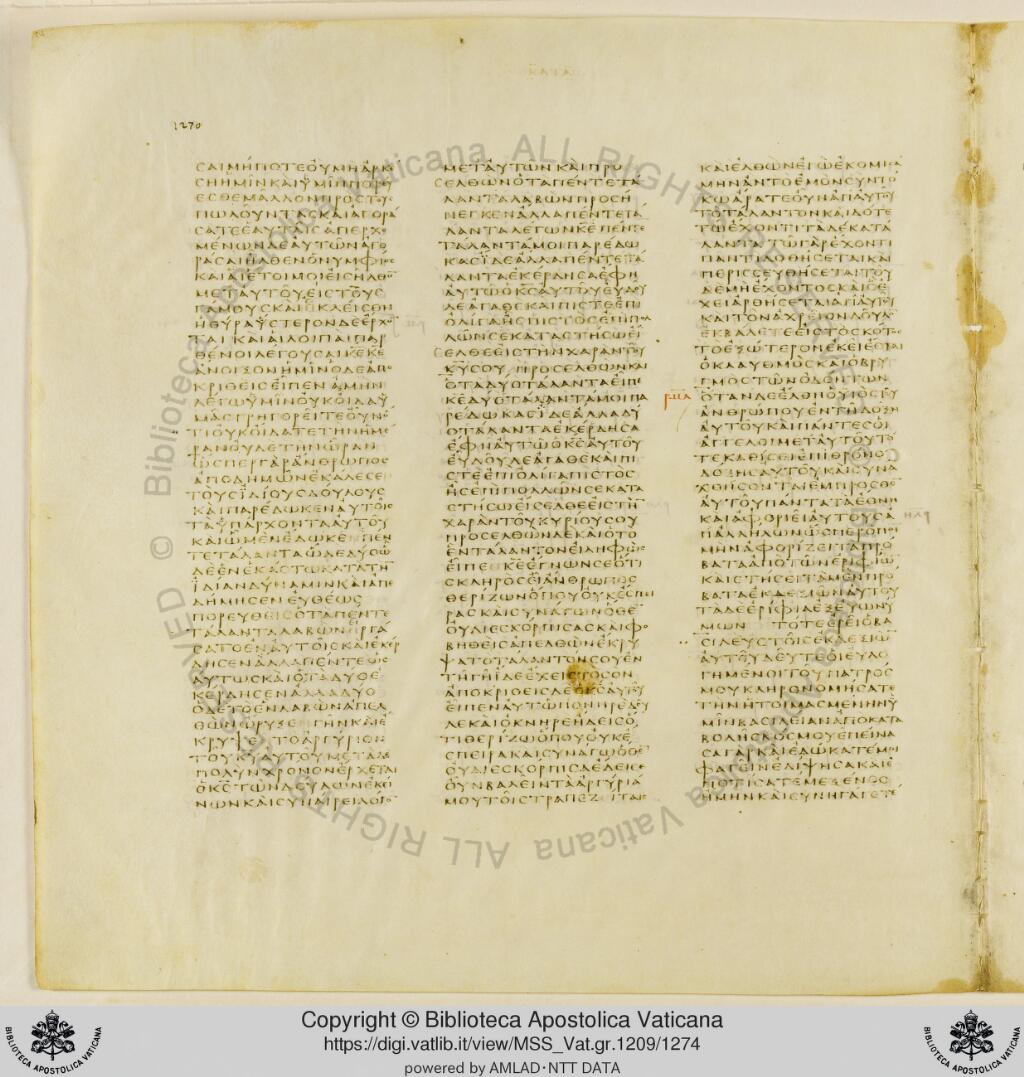 1270
ϹΑΙΜΗΠΟΤΕΟΥΜΗΑΡΚΕ
ϹΗΗΜΙΝΚΑΙΥΜΙΝΠΟΡΕΥ
ΕϹΘΕΜΑΛΛΟΝΠΡΟϹΤΟΥϹ
ΠΩΛΟΥΝΤΑϹΚΑΙΑΓΟΡΑ
ϹΑΤΕΕΑΥΤΑΙϹΑΠΕΡΧΟ
ΜΕΝΩΝΔΕΑΥΤΩΝΑΓΟ
ΡΑϹΑΙΗΛΘΕΝΟΝΥΜΦΙΟϹ
ΚΑΙΑΙΕΤΟΙΜΟΙΕΙϹΗΛΘΟΝ
ΜΕΤΑΥΤΟΥΕΙϹΤΟΥϹ
ΓΑΜΟΥϹΚΑΙΕΚΛΕΙϹΘΗ
ΗΘΥΡΑΥϹΤΕΡΟΝΔΕΕΡΧΟΝ
ΤΑΙΚΑΙΑΙΛΟΙΠΑΙΠΑΡ
ΘΕΝΟΙΛΕΓΟΥϹΑΙΚΕΚΕ
ΑΝΟΙΞΟΝΗΜΙΝΟΔΕΑΠΟ
ΚΡΙΘΕΙϹΕΙΠΕΝΑΜΗΝ
ΛΕΓΩΥΜΙΝΟΥΚΟΙΔΑΥ
ΜΑϹΓΡΗΓΟΡΕΙΤΕΟΥΝΟ
ΤΙΟΥΚΟΙΔΑΤΕΤΗΝΗΜΕ
ΡΑΝΟΥΔΕΤΗΝΩΡΑΝ
ΩϹΠΕΡΓΑΡΑΝΘΡΩΠΟϹ
ΑΠΟΔΗΜΩΝΕΚΑΛΕϹΕ
ΤΟΥϹΙΔΙΟΥϹΔΟΥΛΟΥϹ
ΚΑΙΠΑΡΕΔΩΚΕΝΑΥΤΟΙϹ
ΤΑΥΠΑΡΧΟΝΤΑΑΥΤΟΥ
ΚΑΙΩΜΕΝΕΔΩΚΕΠΕΝ
ΤΕΤΑΛΑΝΤΑΩΔΕΔΥΟΩ
ΔΕΕΝΕΚΑϹΤΩΚΑΤΑΤΗΝ
ΙΔΙΑΝΔΥΝΑΜΙΝΚΑΙΑΠΕ
ΔΗΜΗϹΕΝΕΥΘΕΩϹ
ΠΟΡΕΥΘΕΙϹΟΤΑΠΕΝΤΕ
ΤΑΛΑΝΤΑΛΑΒΩΝΗΡΓΑ
ϹΑΤΟΕΝΑΥΤΟΙϹΚΑΙΕΚΕΡ
ΔΗϹΕΝΑΛΛΑΠΕΝΤΕΩϹ
ΑΥΤΩϹΚΑΙΟΤΑΔΥΟΕ
ΚΕΡΔΗϹΕΝΑΛΛΑΔΥΟ
ΟΔΕΤΟΕΝΛΑΒΩΝΑΠΕΛ
ΘΩΝΩΡΥΞΕΓΗΝΚΑΙΕ
ΚΡΥΨΕΤΟΑΡΓΥΡΙΟΝ
ΤΟΥΚΥΑΥΤΟΥΜΕΤΑΔΕ
ΠΟΛΥΝΧΡΟΝΟΝΕΡΧΕΤΑΙ
ΟΚϹΤΩΝΔΟΥΛΩΝΕΚΕΙ
ΝΩΝΚΑΙϹΥΝΑΙΡΕΙΛΟΓΟΝ
ΜΕΤΑΥΤΩΝΚΑΙΠΡΟ
ϹΕΛΘΩΝΟΤΑΠΕΝΤΕΤΑ
ΛΑΝΤΑΛΑΒΩΝΠΡΟϹΗ
ΝΕΓΚΕΝΑΛΛΑΠΕΝΤΕΤΑ
ΛΑΝΤΑΛΕΓΩΝΚΕΠΕΝΤΕ
ΤΑΛΑΝΤΑΜΟΙΠΑΡΕΔΩ
ΚΑϹΙΔΕΑΛΛΑΠΕΝΤΕΤΑ
ΛΑΝΤΑΕΚΕΡΔΗϹΑΕΦΗ
ΑΥΤΩΟΚϹΑΥΤΟΥΕΥΔΟΥ
ΛΕΑΓΑΘΕΚΑΙΠΙϹΤΕΕΠΙ
ΟΛΙΓΑΗϹΠΙϹΤΟϹΕΠΙΠΟΛ
ΛΩΝϹΕΚΑΤΑϹΤΗϹΩΕΙ
ϹΕΛΘΕΕΙϹΤΗΝΧΑΡΑΝΤΟΥ
ΚΥϹΟΥΠΡΟϹΕΛΘΩΝΚΑΙ
ΟΤΑΔΥΟΤΑΛΑΝΤΑΕΙΠΕ
ΚΕΔΥΟΤΑΛΑΝΤΑΜΟΙΠΑ
ΡΕΔΩΚΑϹΙΔΕΑΛΛΑΔΥ
ΟΤΑΛΑΝΤΑΕΚΕΡΔΗϹΑ
ΕΦΗΑΥΤΩΟΚϹΑΥΤΟΥ
ΕΥΔΟΥΛΕΑΓΑΘΕΚΑΙΠΙ
ϹΤΕΕΠΙΟΛΙΓΑΠΙϹΤΟϹ
ΗϹΕΠΙΠΟΛΛΩΝϹΕΚΑΤΑ
ϹΤΗϹΩΕΙϹΕΛΘΕΕΙϹΤΗΝ
ΧΑΡΑΝΤΟΥΚΥΡΙΟΥϹΟΥ
ΠΡΟϹΕΛΘΩΝΔΕΚΑΙΟΤΟ
ΕΝΤΑΛΑΝΤΟΝΕΙΛΗΦΩϹ
ΕΙΠΕΚΕΕΓΝΩΝϹΕΟΤΙ
ϹΚΛΗΡΟϹΕΙΑΝΘΡΩΠΟϹ
ΘΕΡΙΖΩΝΟΠΟΥΟΥΚΕϹΠΕΙ
ΡΑϹΚΑΙϹΥΝΑΓΩΝΟΘΕΝ
ΟΥΔΙΕϹΚΟΡΠΙϹΑϹΚΑΙΦΟ
ΒΗΘΕΙϹΑΠΕΛΘΩΝΕΚΡΥ
ΨΑΤΟΤΑΛΑΝΤΟΝϹΟΥΕΝ
ΤΗΓΗΙΔΕΕΧΕΙϹΤΟϹΟΝ
ΑΠΟΚΡΙΘΕΙϹΔΕΟΚϹΑΥΤΟΥ
ΕΙΠΕΝΑΥΤΩΠΟΝΗΡΕΔΟΥ
ΛΕΚΑΙΟΚΝΗΡΕΗΔΕΙϹΟ
ΤΙΘΕΡΙΖΩΟΠΟΥΟΥΚΕ
ϹΠΕΙΡΑΚΑΙϹΥΝΑΓΩΟΘΕΝ
ΟΥΔΙΕϹΚΟΡΠΙϹΑΕΔΕΙϹΕ
ΟΥΝΒΑΛΕΙΝΤΑΑΡΓΥΡΙΑ
ΜΟΥΤΟΙϹΤΡΑΠΕΖΙΤΑΙϹ
ΚΑΙΕΛΘΩΝΕΓΩΕΚΟΜΙϹΑ
ΜΗΝΑΝΤΟΕΜΟΝϹΥΝΤΟ
ΚΩΑΡΑΤΕΟΥΝΑΠΑΥΤΟΥ
ΤΟΤΑΛΑΝΤΟΝΚΑΙΔΟΤΕ
ΤΩΕΧΟΝΤΙΤΑΔΕΚΑΤΑ
ΛΑΝΤΑΤΩΓΑΡΕΧΟΝΤΙ
ΠΑΝΤΙΔΟΘΗϹΕΤΑΙΚΑΙ
ΠΕΡΙϹϹΕΥΘΗϹΕΤΑΙΤΟΥ
ΔΕΜΗΕΧΟΝΤΟϹΚΑΙΟΕ
ΧΕΙΑΡΘΗϹΕΤΑΙΑΠΑΥΤΟΥ
ΚΑΙΤΟΝΑΧΡΕΙΟΝΔΟΥΛΟΝ
ΕΚΒΑΛΕΤΕΕΙϹΤΟϹΚΟ
ΤΟΕΞΩΤΕΡΟΝΕΚΕΙΕϹΤΑΙ
ΟΚΛΑΥΘΜΟϹΚΑΙΟΒΡΥ
ΓΜΟϹΤΩΝΟΔΟΝΤΩΝ
ΜΑ ΟΤΑΝΔΕΕΛΘΗΟΥΙΟϹΤΟΥ
ΑΝΘΡΩΠΟΥΕΝΤΗΔΟΞΗ
ΑΥΤΟΥΚΑΙΠΑΝΤΕϹΟΙ
ΑΓΓΕΛΟΙΜΕΤΑΥΤΟΥΤΟ
ΤΕΚΑΘΙϹΕΙΕΠΙΘΡΟΝΟΥ
ΔΟΞΗϹΑΥΤΟΥΚΑΙϹΥΝΑ
ΧΘΗϹΟΝΤΑΙΕΜΠΡΟϹΘΕΝ
ΑΥΤΟΥΠΑΝΤΑΤΑΕΘΝΗ
ΚΑΙΑΦΟΡΙΕΙΑΥΤΟΥϹΑ
ΠΑΛΛΗΛΩΝΩϹΠΕΡΟΠΟΙ
ΜΗΝΑΦΟΡΙΖΕΙΤΑΠΡΟ
ΒΑΤΑΑΠΟΤΩΝΕΡΙΦΙΩΝ
ΚΑΙϹΤΗϹΕΙΤΑΜΕΝΠΡΟ
ΒΑΤΑΕΚΔΕΞΙΩΝΑΥΤΟΥ
ΤΑΔΕΕΡΙΦΙΑΕΞΕΥΩΝΥ
ΜΩΝ ΤΟΤΕΕΡΕΙΟΒΑ
ϹΙΛΕΥϹΤΟΙϹΕΚΔΕΞΙΩΝ
ΑΥΤΟΥΔΕΥΤΕΟΙΕΥΛΟ
ΓΗΜΕΝΟΙΤΟΥΠΑΤΡΟϹ
ΜΟΥΚΛΗΡΟΝΟΜΗϹΑΤΕ
ΤΗΝΗΤΟΙΜΑϹΜΕΝΗΝΥ
ΜΙΝΒΑϹΙΛΕΙΑΝΑΠΟΚΑΤΑ
ΒΟΛΗϹΚΟϹΜΟΥΕΠΕΙΝΑ
ϹΑΓΑΡΚΑΙΕΔΩΚΑΤΕΜΟΙ
ΦΑΓΕΙΝΕΔΙΨΗϹΑΚΑΙΕ
ΠΟΤΙϹΑΤΕΜΕΞΕΝΟϹ
ΗΜΗΝΚΑΙϹΥΝΗΓΑΓΕΤΕ
Copyright © Biblioteca Apostolica Vaticana
https://digi.vatlib.it/view/MSS_Vat.gr.1209/1274
powered by AMLAD·NTT DATA
BIBLIOTECA APOSTOLICA VATICANA
BIBLIOTECA APOSTOLICA VATICANA